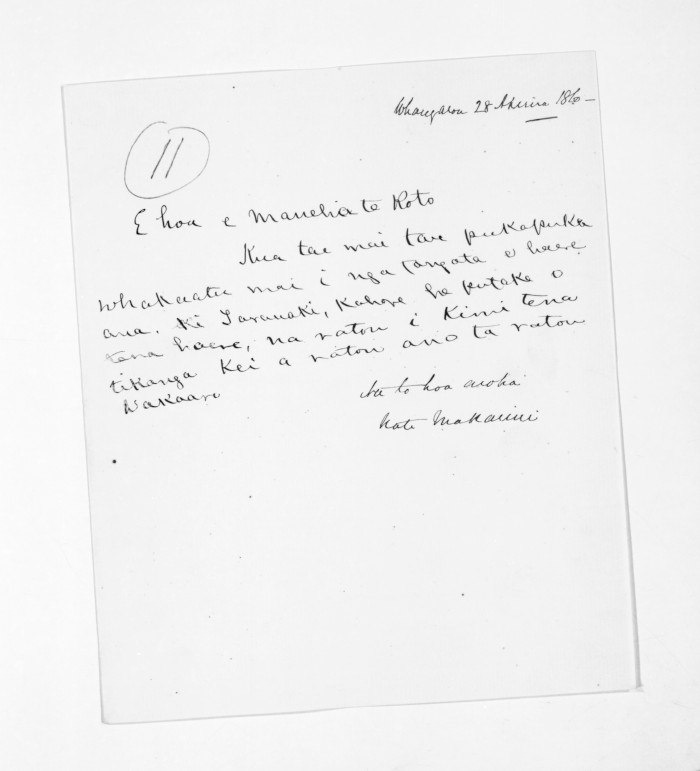 Whangaroa 28 Aperira 1860 —
11
E hoa e Manehia te Roto
Kua tae mai tau pukapuka
whakaatu mai i nga tangata e haere
ana. ki Taranaki, Kahore he putake o
tena haere, na ratou i Kimi tena
tikanga Kei a ratou ano ta ratou
Wakaaro
Na to hoa aroha
Na te Makarini